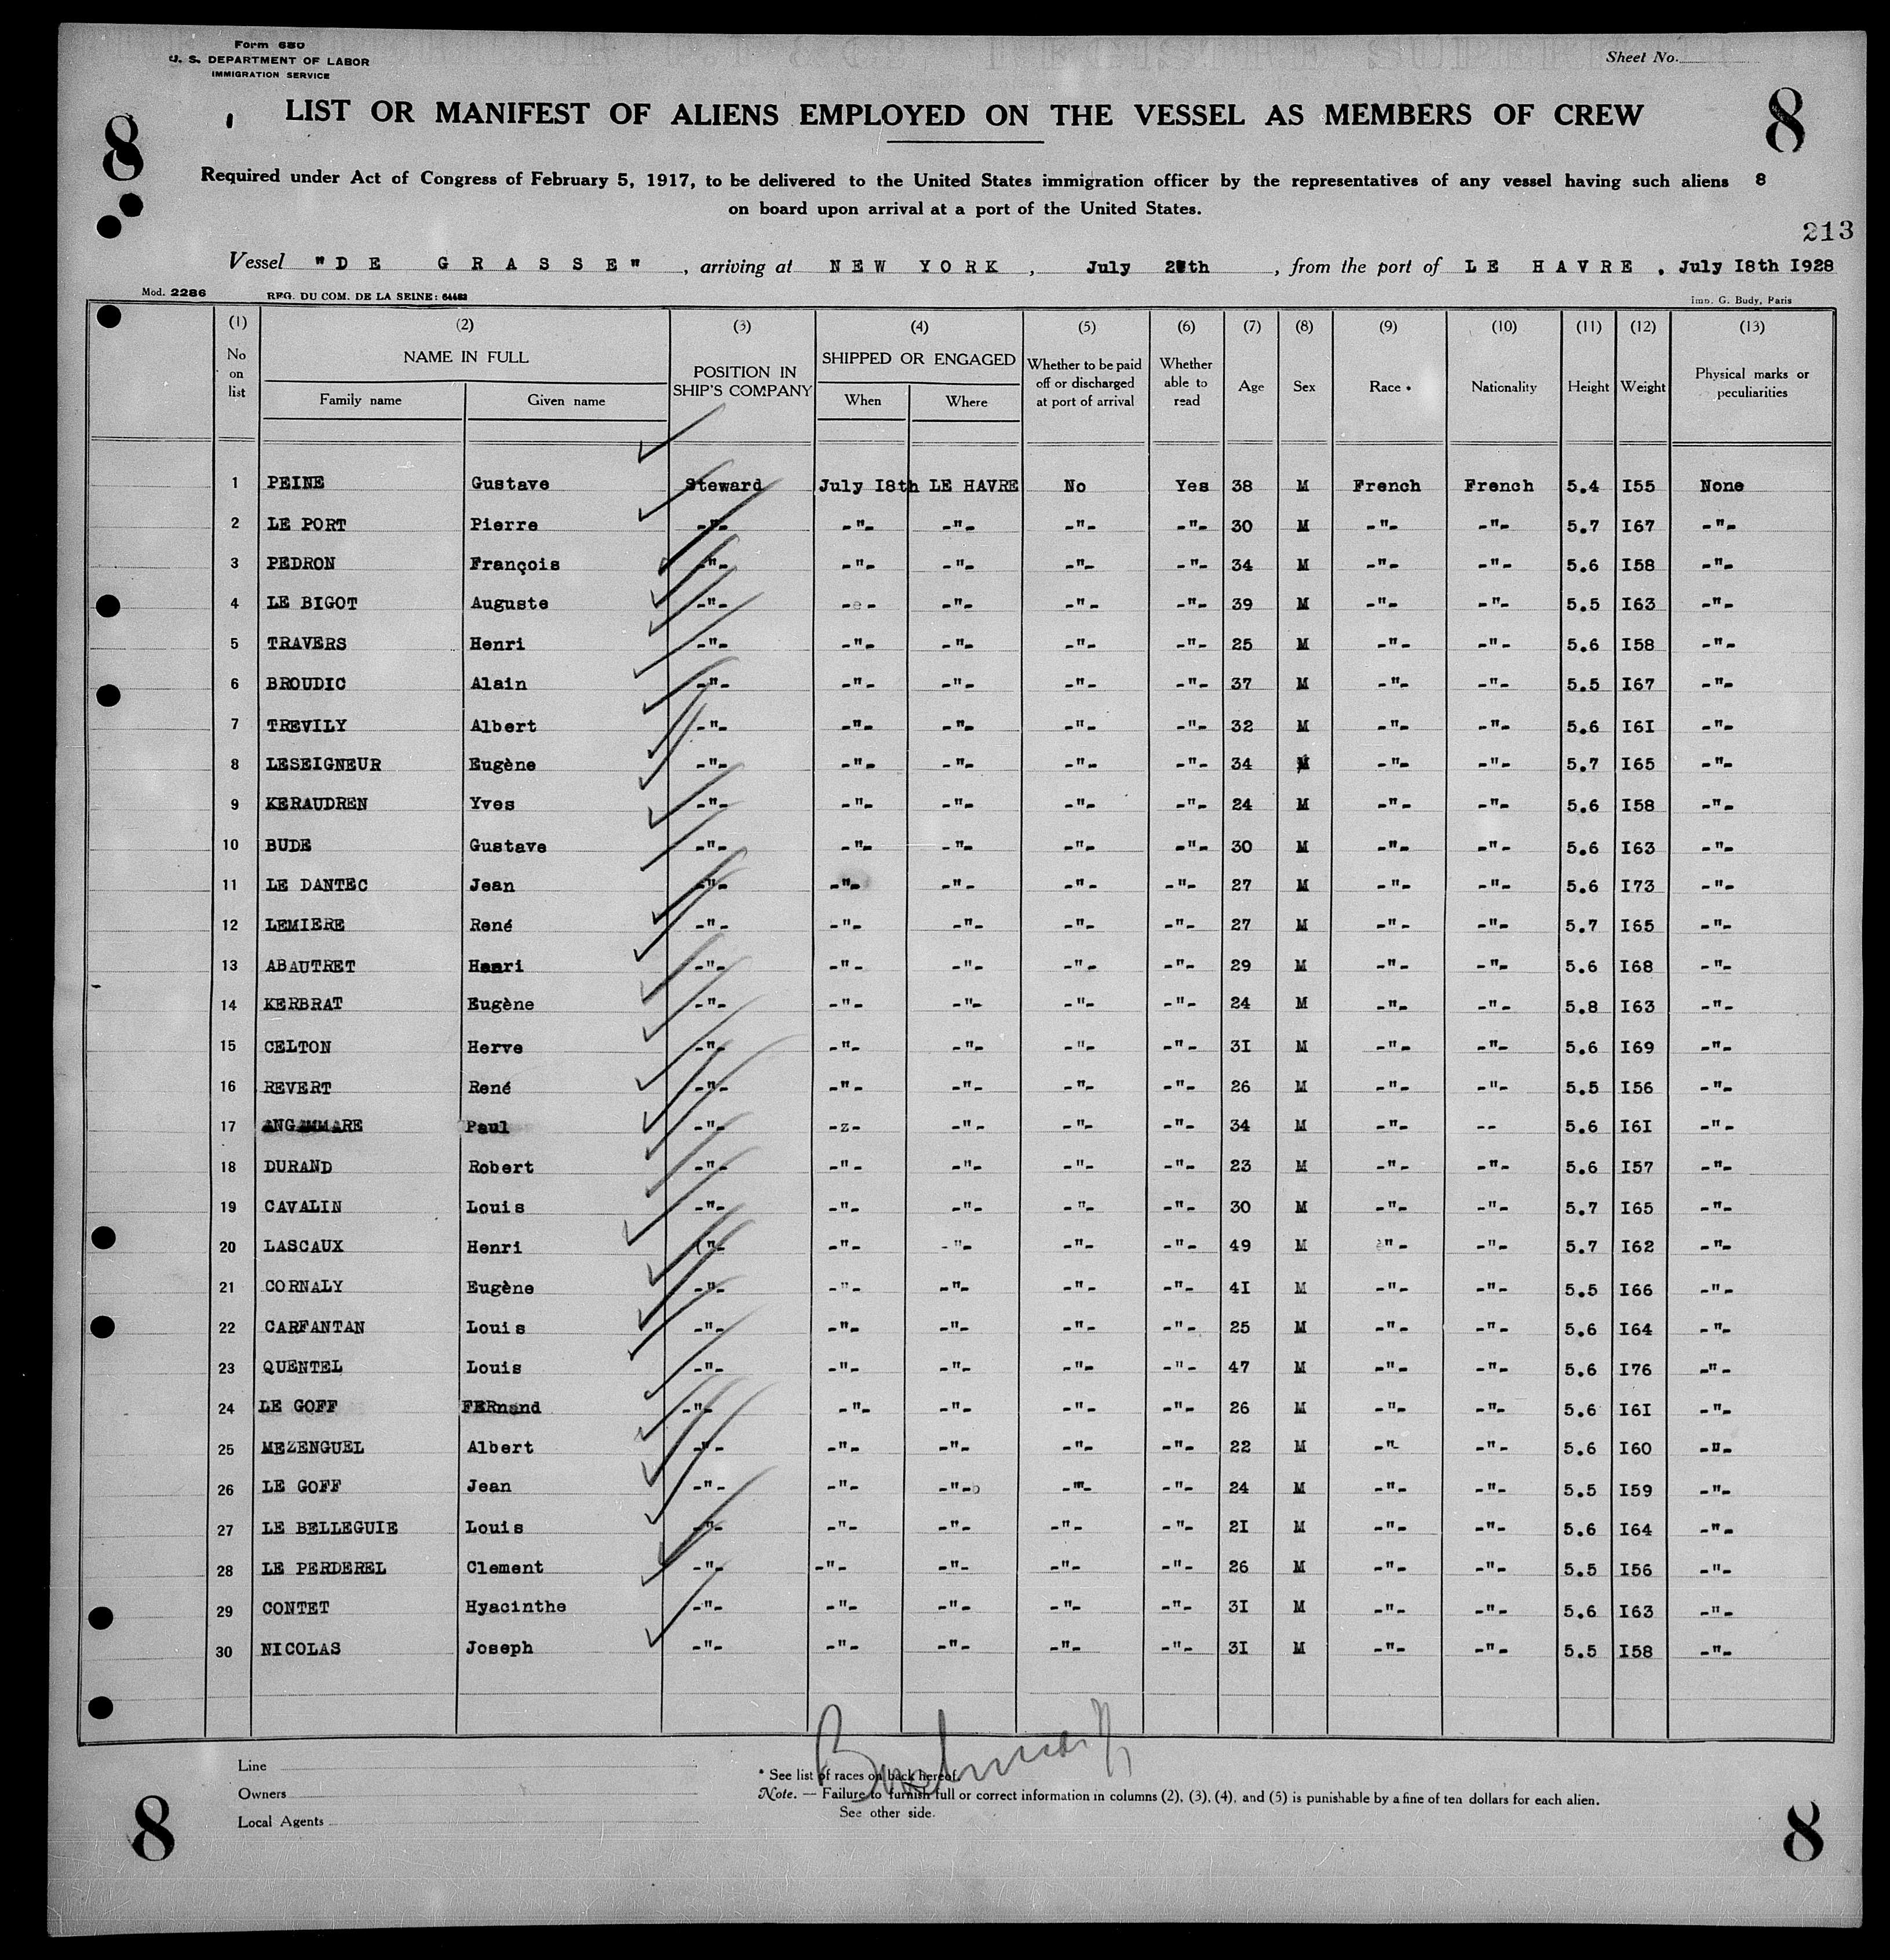 Form 680
U. S. DEPARTMENT OF LABOR
IMMIGRATION SERVICE
Sheet No.
8 LIST OR MANIFEST OF ALIENS EMPLOYED ON THE VESSEL AS MEMBERS OF CREW 8
Required under Act of Congress of February 5, 1917, to be delivered to the United States immigration officer by the representatives of any vessel having such aliens 8
on board upon arrival at a port of the United States.
213
Vessel "DE GRASSE", arriving at NEW YORK, July th, from the port of LE HAVRE, July I8th I928
Mod. 2286 REG. DU COM. DE LA SEINE: 64482 Imp. G. Budy, Paris
(1) (2) (3) (4) (5) (6) (7) (8) (9) (10) (11) (12) (13)
No on list NAME IN FULL Family name Given name POSITION IN SHIP'S COMPANY SHIPPED OR ENGAGED When Where Whether to be paid off or discharged at port of arrival Whether able to read Age Sex Race * Nationality Height Weight Physical marks or peculiarities
1 PEINE Gustave Steward July I8th LE HAVRE No Yes 38 M French French 5.4 I55 None
2 LE PORT Pierre -"- -"- -"- -"- -"- 30 M -"- -"- 5.7 I67 -"-
3 PEDRON François -"- -"- -"- -"- -"- 34 M -"- -"- 5.6 I58 -"-
4 LE BIGOT Auguste -"- -e- -"- -"- -"- 39 M -"- -"- 5.5 I63 -"-
5 TRAVERS Henri -"- -"- -"- -"- -"- 25 M -"- -"- 5.6 I58 -"-
6 BROUDIC Alain -"- -"- -"- -"- -"- 37 M -"- -"- 5.5 I67 -"-
7 TREVILY Albert -"- -"- -"- -"- -"- 32 M -"- -"- 5.6 I6I -"-
8 LESEIGNEUR Eugène -"- -"- -"- -"- -"- 34 M -"- -"- 5.7 I65 -"-
9 KERAUDREN Yves -"- -"- -"- -"- -"- 24 M -"- -"- 5.6 I58 -"-
10 BUDE Gustave -"- -"- -"- -"- -"- 30 M -"- -"- 5.6 I63 -"-
11 LE DANTEC Jean -"- -"- -"- -"- -"- 27 M -"- -"- 5.6 I73 -"-
12 LEMIERE René -"- -"- -"- -"- -"- 27 M -"- -"- 5.7 I65 -"-
13 ABAUTRET Henri -"- -"- -"- -"- -"- 29 M -"- -"- 5.6 I68 -"-
14 KERBRAT Eugène -"- -"- -"- -"- -"- 24 M -"- -"- 5.8 I63 -"-
15 CELTON Herve -"- -"- -"- -"- -"- 3I M -"- -"- 5.6 I69 -"-
16 REVERT René -"- -"- -"- -"- -"- 26 M -"- -"- 5.5 I56 -"-
17 ANGAMMARE Paul -"- -z- -"- -"- -"- 34 M -"- -- 5.6 I6I -"-
18 DURAND Robert -"- -"- -"- -"- -"- 23 M -"- -"- 5.6 I57 -"-
19 CAVALIN Louis -"- -"- -"- -"- -"- 30 M -"- -"- 5.7 I65 -"-
20 LASCAUX Henri ("- -"- -"- -"- -"- 49 M "- -"- 5.7 I62 -"-
21 CORNALY Eugène -"- -"- -"- -"- -"- 4I M -"- -"- 5.5 I66 -"-
22 CARFANTAN Louis -"- -"- -"- -"- -"- 25 M -"- -"- 5.6 I64 -"-
23 QUENTEL Louis -"- -"- -"- -"- -"- 47 M -"- -"- 5.6 I76 -"-
24 LE GOFF FERnand -"- -"- -"- -"- -"- 26 M -"- -"- 5.6 I6I -"-
25 MEZENGUEL Albert -"- -"- -"- -"- -"- 22 M -"- -"- 5.6 I60 -"-
26 LE GOFF Jean -"- -"- -"- -"- -"- 24 M -"- -"- 5.5 I59 -"-
27 LE BELLEGUIE Louis -"- -"- -"- -"- -"- 2I M -"- -"- 5.6 I64 -"-
28 LE PERDEREL Clement -"- -"- -"- -"- -"- 26 M -"- -"- 5.5 I56 -"-
29 CONTET Hyacinthe -"- -"- -"- -"- -"- 3I M -"- -"- 5.6 I63 -"-
30 NICOLAS Joseph -"- -"- -"- -"- -"- 3I M -"- -"- 5.5 I58 -"-
Line
Owners
Local Agents
* See list of races on back hereof.
Note. — Failure to furnish full or correct information in columns (2), (3), (4), and (5) is punishable by a fine of ten dollars for each alien.
See other side.
8 8